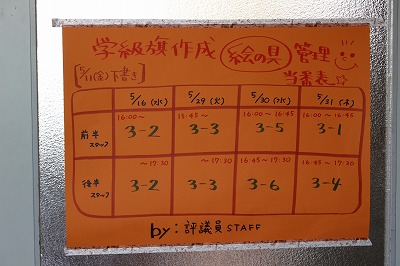 学級旗作成 絵の具 管理
[5/11(金)下書き] 当番表☆
5/16(水) 5/29(火) 5/30(水) 5/31(木)
16:00~ 15:45~ 16:00~16:45 16:00~16:45
前半スタッフ 3-2 3-3 3-5 3-1
~17:30 ~17:30 16:45~17:30 16:45~17:30
後半スタッフ 3-2 3-3 3-6 3-4
by:評議員STAFF